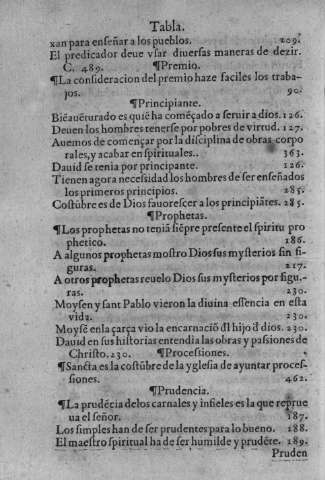 Tabla.
xan para enseñar a los pueblos. 209.
El predicador deue vsar diuersas maneras de dezir.
C. 489. ¶Premio.
¶La consideracion del premio haze faciles los traba-
jos. 90.
¶Principiante.
Biēauēturado es quiē ha comēçado a seruir a dios. 126.
Deuen los hombres tenerse por pobres de virtud. 127.
Auemos de començar por la disciplina de obras corpo
rales, y acabar en spirituales.. 363.
Dauid se tenia por principante. 126.
Tienen agora necessidad los hombres de ser enseñados
los primeros principios. 285.
Costūbre es de Dios fauorescer a los principiātes. 285.
¶Prophetas.
¶Los prophetas no teniā siēpre presente el spiritu pro
phetico. 186.
A algunos prophetas mostro Dios sus mysterios sin fi-
guras. 217.
A otros prophetas reuelo Dios sus mysterios por figu-
ras. 230.
Moysen y sant Pablo vieron la diuina essencia en esta
vida. 230.
Moysē en la çarça vio la encarnaciō dl hijo d̄ dios. 230.
Dauid en sus historias entendia las obras y passiones de
Christo. 230. ¶Processiones.
¶Sancta es la costūbre de la yglesia de ayuntar proces-
siones. 462.
¶Prudencia.
¶La prudēcia de los carnales y infieles es la que reprue
ua el señor. 187.
Los simples han de ser prudentes para lo bueno. 188.
El maestro spiritual ha de ser humilde y prudēte. 189.
Pruden